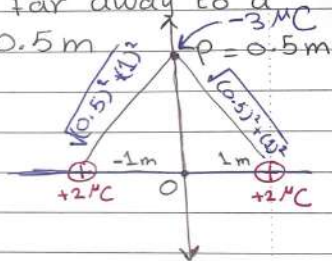 far away to a
-3 μC
0.5 m
P = 0.5 m
√(0.5)²+(1)²
√(0.5)²+(1)²
-1m
1m
O
+2 μC
+2 μC